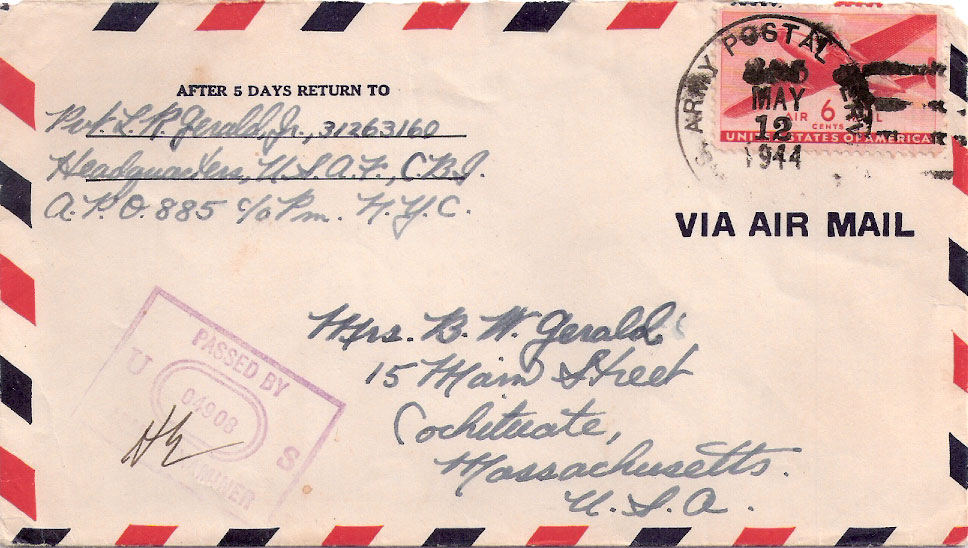 AFTER 5 DAYS RETURN TO
Pvt. L. P. Gerald, Jr., 31263160
Headquarters, U.S.A.F., C.B.I.
A.P.O. 885 c/o Pm. N.Y.C.
ARMY POSTAL
MAY
12
1944
AIR 6 MAIL
CENTS
UNITED STATES OF AMERICA
VIA AIR MAIL
PASSED BY
U 04908 S
EXAMINER
Mrs. B. W. Gerald
15 Main Street
Cochituate,
Massachusetts.
U.S.A.